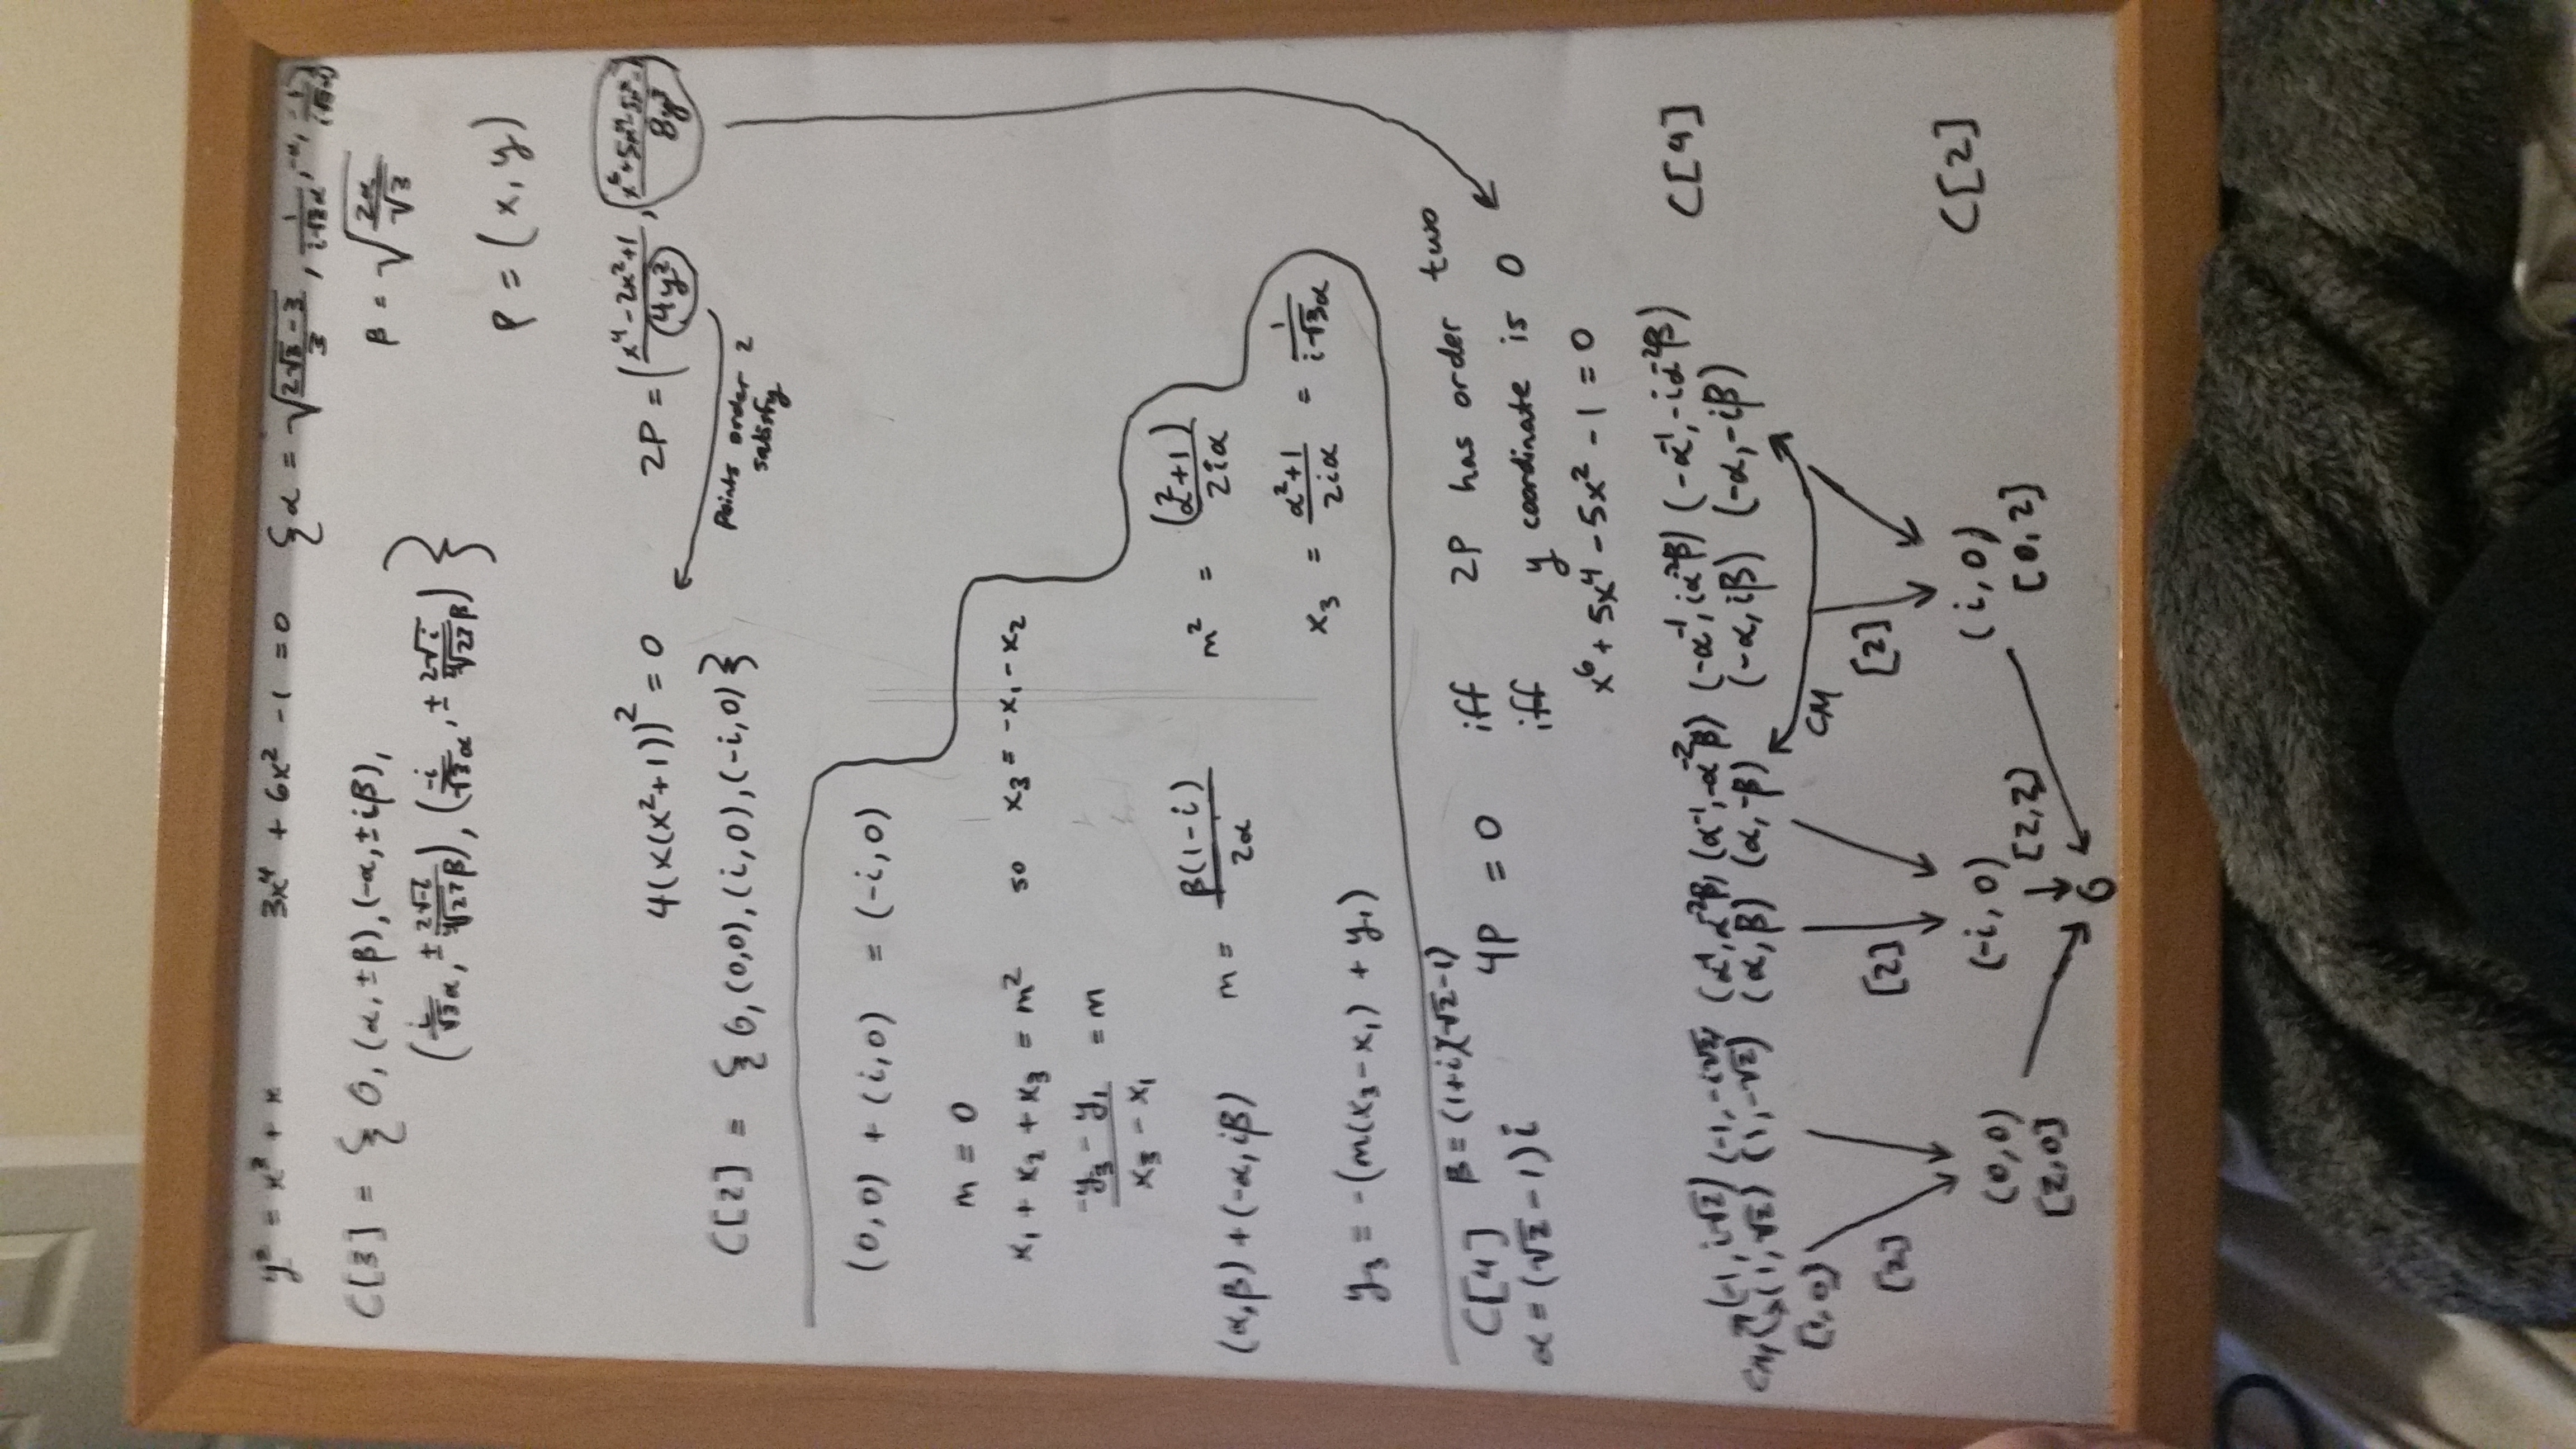 y² = x³ + x 3x⁴ + 6x² - 1 = 0 { α = √((2√3 - 3)/3), 1/(i√3α), -α, -1/(i√3α) }
C[3] = { O, (α, ±β), (-α, ±iβ), β = √(2α/√3)
(i/(√3α), ± 2√-i/(∜27β)), (-i/(√3α), ± 2√i/(∜27β)) }
P = (x, y)
4(x(x²+1))² = 0 2P = ((x⁴ - 2x² + 1)/(4y²), (x⁶ + 5x⁴ - 5x² - 1)/(8y³))
C[2] = { O, (0,0), (i,0), (-i,0) } points order 2
satisfy
(0,0) + (i,0) = (-i,0)
m = 0
x₁ + x₂ + x₃ = m² so x₃ = -x₁ - x₂
(-y₃ - y₁)/(x₃ - x₁) = m
(α,β) + (-α, iβ) m = β(1-i)/(2α) m² = (α²+1)/(2iα)
x₃ = (α²+1)/(2iα) = 1/(i√3α)
y₃ = -(m(x₃ - x₁) + y₁)
C[4] β = (1+i)(√2-1) 4P = 0 iff 2P has order two
α = (√2 - 1)i iff y coordinate is 0
x⁶ + 5x⁴ - 5x² - 1 = 0
(-1, i√2) (-1, -i√2) (α⁻¹, α⁻²β) (α⁻¹, -α⁻²β) (-α⁻¹, iα⁻²β) (-α⁻¹, -iα⁻²β) C[4]
CM (1, √2) (1, -√2) (α, β) (α, -β) (-α, iβ) (-α, -iβ)
[1,0] CM
[2] [2] [2]
(0,0) (-i,0) (i,0) C[2]
[2,0] [2,2] [0,2]
O